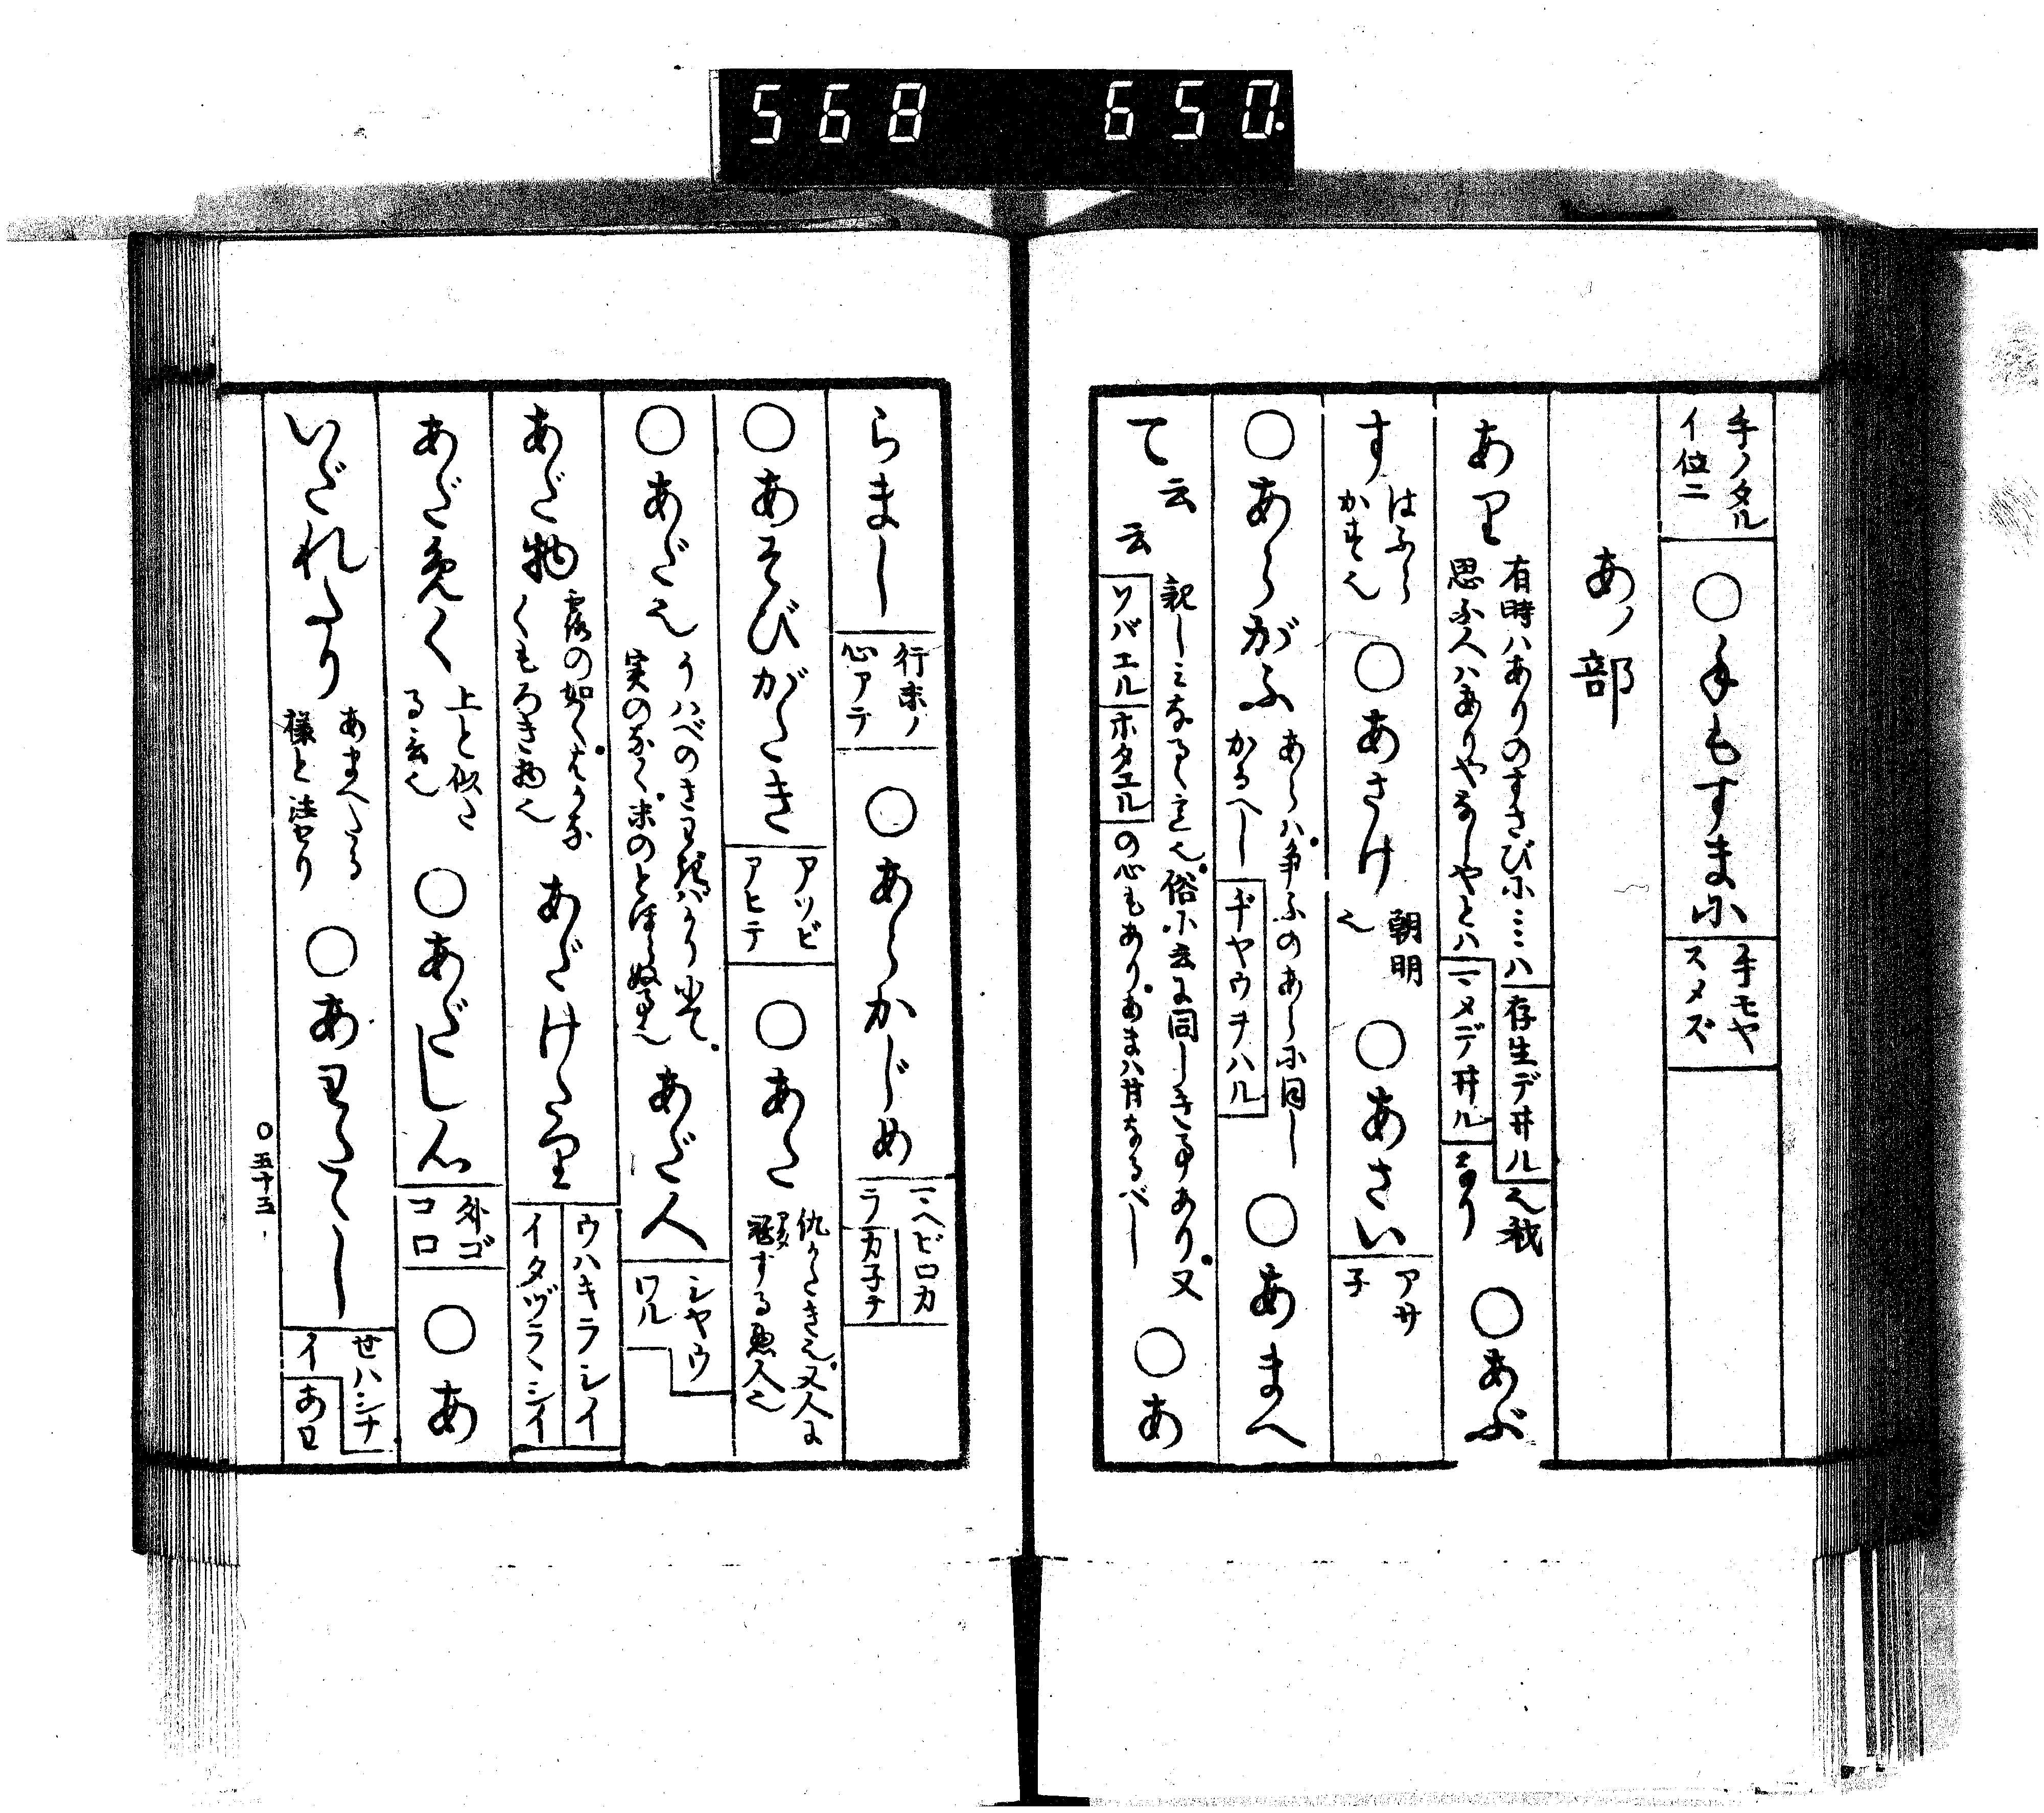 568 650.
手ノタル
イ位ニ
○手もすまに
手モヤ
スメズ
あノ部
あり
有時ハありのすさびにミミハ存生デ井ル也我
思ふ人ハありやなしやとハマメデ井ルなり
○あぶ
す
はふら
かす也
○あさけ
朝明
也
○あさい
アサ
子
○あらがふ
あらハ争ふのあらに同し
かるべし
ギヤウヲハル
○あまへ
て云云
親しミなるゝ意也俗に云に同しき事あり又
ソバエル
ホタエル
の心もありあまハ甘なるべし
○あ
らまし
行末ノ
心アテ
○あらかじめ
マヘビロカ
ラ
カ子テ
○あそびがたき
アソビ
アヒテ
○あた
仇がたき也又人に
冠する悪人也
○あだ也
うハべのさまばかりにて
実のなく末のとほらぬ事也
あだ人
シヤウ
ワル
あだ物
露の如くはかな
くもろき物也
あだけたり
ウハキラシイ
イタヅラシイ
あだめく
上と似た
る意也
○あだし心
外ゴ
コロ
○あ
いだれたり
あまへたる
様と注せり
○あわたゝし
せハシナ
イ
あわ
○五十五